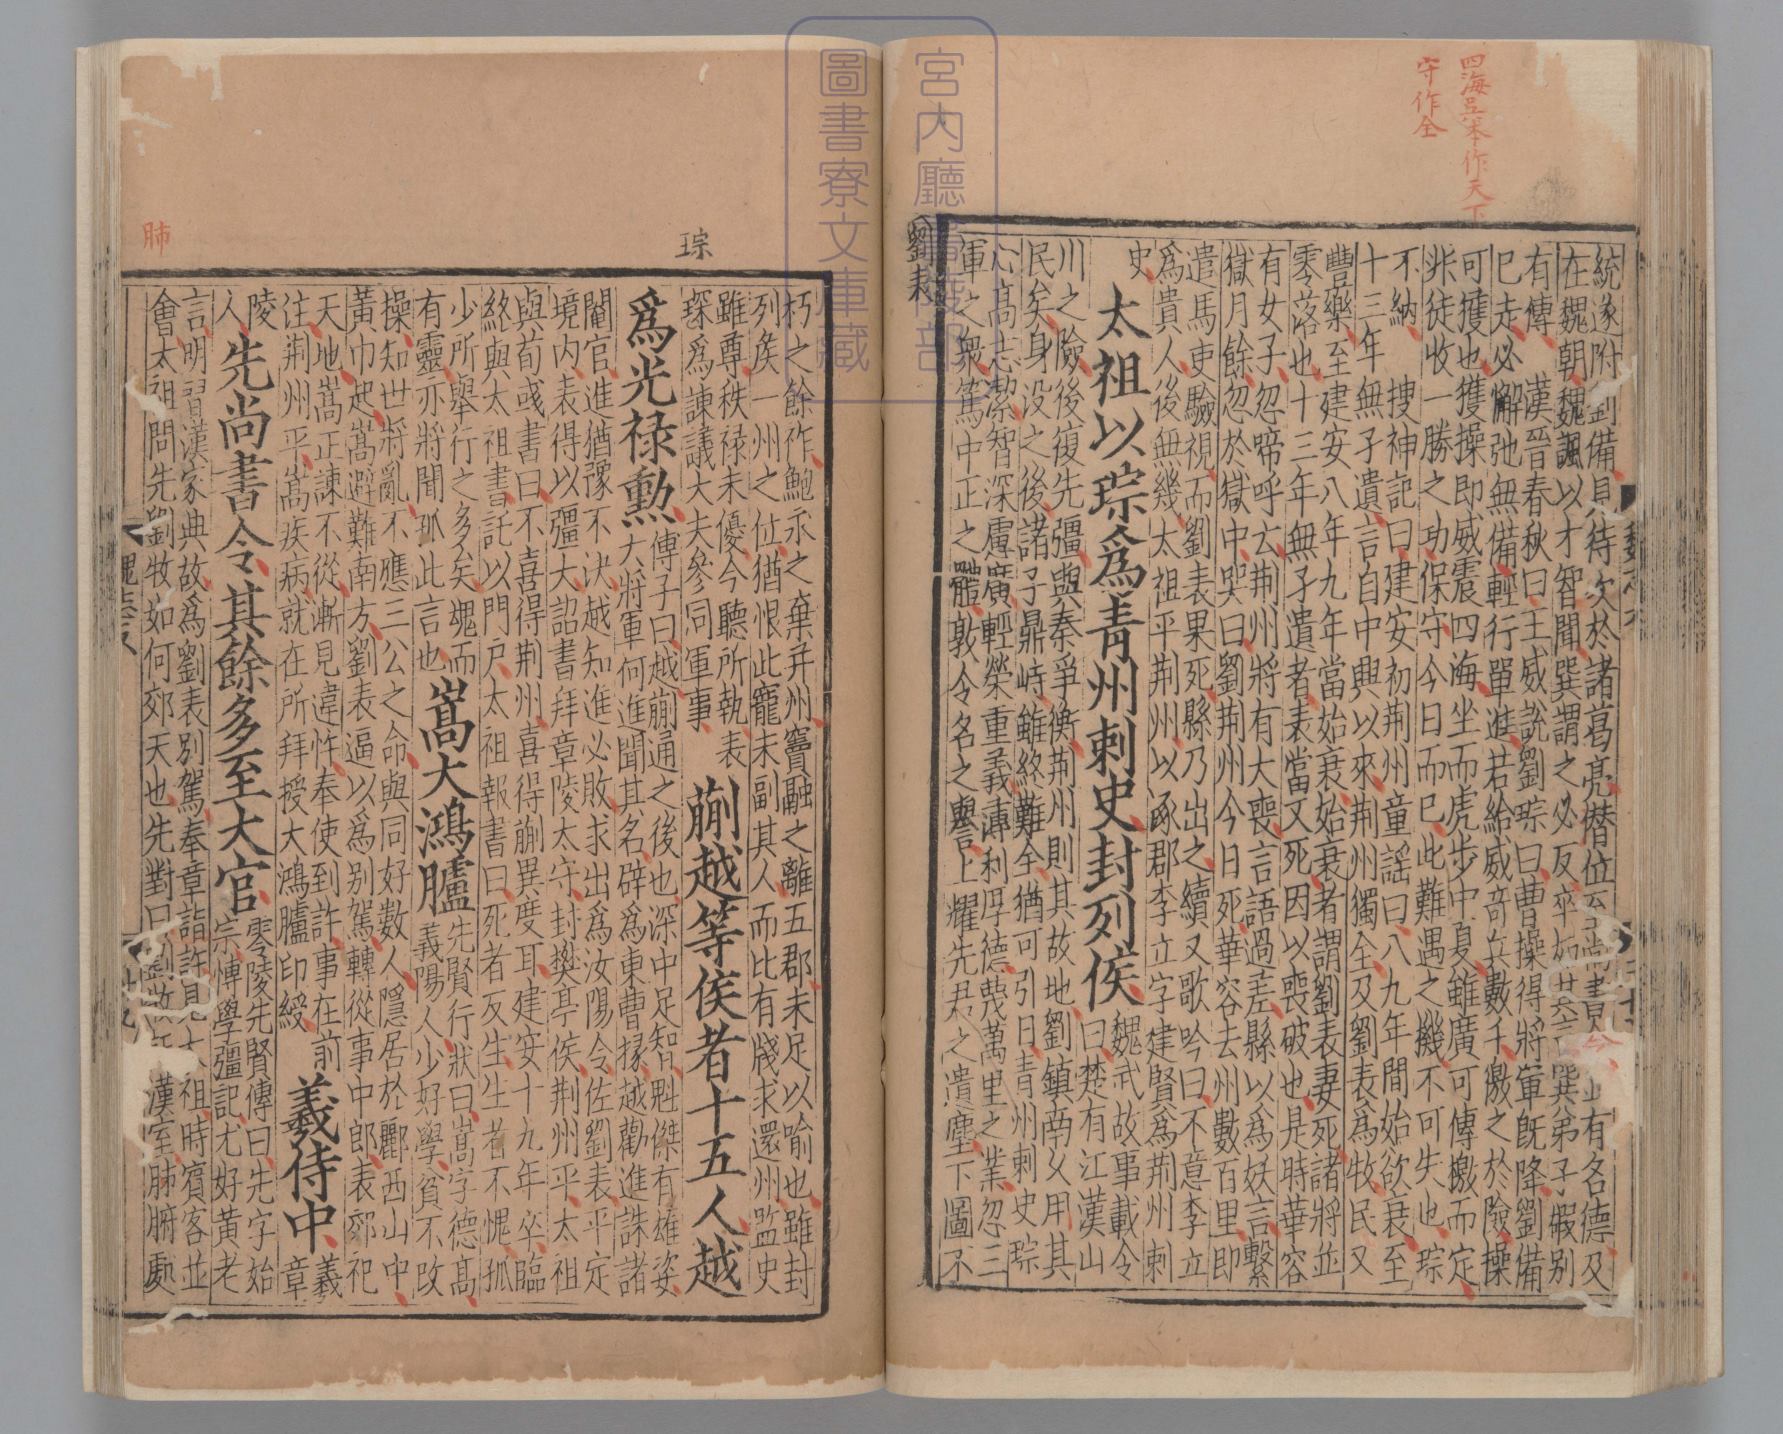 四海吳本作天下
守作全
統遂附劉備見待次於諸葛亮僣位至尚書令並有名德及
在魏朝魏諷以才智聞巽謂之必反卒如其言巽弟子嘏別
有傳　漢晉春秋曰王威說劉琮曰曹操得將軍旣降劉備
巳走必懈弛無備輕行單進若給威奇兵數千徼之於險操
可獲也獲操即威震四海坐而虎步中夏雖廣可傳檄而定
非徒收一勝之功保守今日而已此難遇之機不可失也琮
不納　搜神記曰建安初荆州童謠曰八九年間始欲衰至
十三年無孑遺言自中興以來荆州獨全及劉表爲牧民又
豐樂至建安八年九年當始衰始衰者謂劉表妻死諸將並
零落也十三年無孑遺者表當又死因以喪破也是時華容
有女子忽啼呼云荆州將有大喪言語過差縣以爲妖言繫
獄月餘忽於獄中哭曰劉荆州今日死華容去州數百里即
遣馬吏驗視而劉表果死縣乃出之續又歌吟曰不意李立
爲貴人後無幾太祖平荆州以涿郡李立字建賢爲荆州刺
史
太祖以琮爲青州刺史封列侯
魏武故事載令
曰楚有江漢山
川之險後復先彊與秦爭衡荆州則其故地劉鎮南乆用其
民矣身没之後諸子鼎峙雖終難全猶可引日青州刺史琮
心高志潔智深慮廣輕榮重義薄利厚德蔑萬里之業忽三
軍之衆篤中正之體敦令名之譽上耀先君之遺塵下圖不
劉表
宮内廳書陵部
圖書寮文庫藏
琮
肺
朽之餘祚鮑永之棄幷州竇融之離五郡未足以喻也雖封
列矦一州之位猶恨此寵未副其人而比有牋求還州監史
雖尊秩祿未優今聽所執表
琮爲諫議大夫參同軍事
蒯越等侯者十五人越
爲光祿勲
傅子曰越蒯通之後也深中足智魁傑有雄姿
大將軍何進聞其名辟爲東曹掾越勸進誅諸
閹官進猶豫不決越知進必敗求出爲汝陽令佐劉表平定
境内表得以彊大詔書拜章陵太守封樊亭侯荆州平太祖
與荀彧書曰不喜得荆州喜得蒯異度耳建安十九年卒臨
終與太祖書託以門戸太祖報書曰死者反生生者不愧孤
少所舉行之多矣魂而
有靈亦將聞孤此言也
嵩大鴻臚
先賢行狀曰嵩字德高
義陽人少好學貧不改
操知世將亂不應三公之命與同好數人隱居於酈西山中
黃巾起嵩避難南方劉表逼以爲別駕轉從事中郎表郊祀
天地嵩正諫不從漸見違忤奉使到許事在前
注荆州平嵩疾病就在所拜授大鴻臚印綬
羲侍中
羲
章
陵
人
先尚書令其餘多至大官
零陵先賢傳曰先字始
宗愽學彊記尤好黃老
言明習漢家典故爲劉表別駕奉章詣許見太祖時賓客並
會太祖問先劉牧如何郊天也先對曰劉牧託漢室肺腑處
魏志六